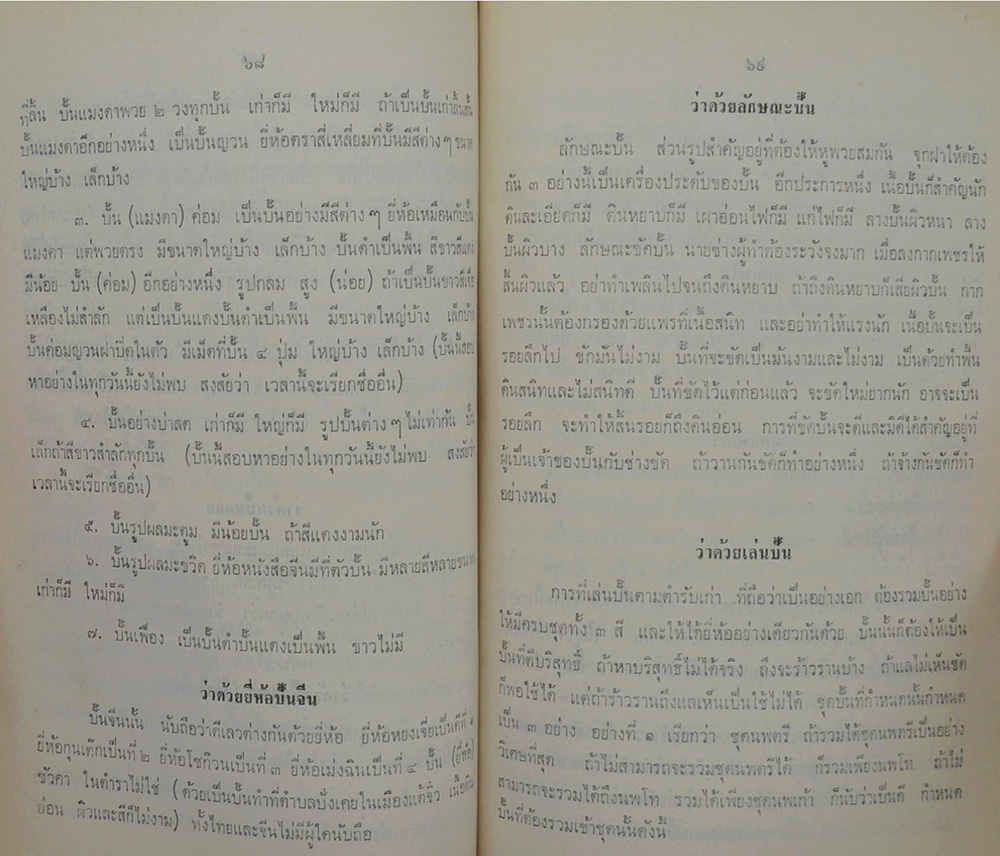 ๖๘
ที่ลิ้น ปั้นแมงดาพวย ๒ วงทุกปั้น เก่าก็มี ใหม่ก็มี ถ้าเป็นปั้นเก่า
ปั้นแมงดาอีกอย่างหนึ่ง เป็นปั้นญวน ยี่ห้อตราสี่เหลี่ยมที่ปั้นมีสีต่าง ๆ ขนาด
ใหญ่บ้าง เล็กบ้าง
๓. ปั้น (แมงดา) ค่อม เป็นปั้นอย่างมีสีต่าง ๆ ยี่ห้อเหมือนกับปั้น
แมงดา แต่พวยตรง มีขนาดใหญ่บ้าง เล็กบ้าง ปั้นดำเป็นพื้น สีขาวสีแดง
มีน้อย ปั้น (ค่อม) อีกอย่างหนึ่ง รูปกลม สูง (น่อย) ถ้าเป็นปั้นขาวสี
เหลืองไม่สำลัก แต่เป็นปั้นแดงปั้นดำเป็นพื้น มีขนาดใหญ่บ้าง เล็กบ้าง
ปั้นค่อมญวนฝาปิดในตัว มีเม็ดที่ปั้น ๔ ปุ่ม ใหญ่บ้าง เล็กบ้าง (ปั้นนี้สอบ
หาอย่างในทุกวันนี้ยังไม่พบ สงสัยว่า เวลานี้จะเรียกชื่ออื่น)
๔. ปั้นอย่างบ่าลด เก่าก็มี ใหญ่ก็มี รูปปั้นต่าง ๆ ไม่เท่ากัน ปั้น
เล็กถ้าสีขาวสำลักทุกปั้น (ปั้นนี้สอบหาอย่างในทุกวันนี้ยังไม่พบ สงสัยว่า
เวลานี้จะเรียกชื่ออื่น)
๕. ปั้นรูปผลมะตูม มีน้อยปั้น ถ้าสีแดงงามนัก
๖. ปั้นรูปผลมะขวิด ยี่ห้อหนังสือจีนมีที่ตัวปั้น มีหลายสีหลายขนาด
เก่าก็มี ใหม่ก็มี
๗. ปั้นเฟือง เป็นปั้นดำปั้นแดงเป็นพื้น ขาวไม่มี
ว่าด้วยยี่ห้อปั้นจีน
ปั้นจีนนั้น นับถือว่าดีเลวต่างกันด้วยยี่ห้อ ยี่ห้อหยงเจี่ยเป็นดีที่ ๑
ยี่ห้อกุนเต๊กเป็นที่ ๒ ยี่ห้อโซก๊วนเป็นที่ ๓ ยี่ห้อเม่งฉินเป็นที่ ๔ ปั้น (ยี่ห้อ)
ซัวดา ในตำราไม่ใช่ (ด้วยเป็นปั้นทำที่ตำบลปั่งเคยในเมืองแต้จิ๋ว เนื้อดิน
อ่อน ผิวและสีก็ไม่งาม) ทั้งไทยและจีนไม่มีผู้ใดนับถือ
๖๙
ว่าด้วยลักษณะปั้น
ลักษณะปั้น ส่วนรูปสำคัญอยู่ที่ต้องให้หูพวยสมกัน จุกฝาให้ต้อง
กัน ๓ อย่างนี้เป็นเครื่องประดับของปั้น อีกประการหนึ่ง เนื้อปั้นก็สำคัญนัก
ดินละเอียดก็มี ดินหยาบก็มี เผาอ่อนไฟก็มี แก่ไฟก็มี ลางปั้นผิวหนา ลาง
ปั้นผิวบาง ลักษณะขัดปั้น นายช่างผู้ทำต้องระวังจงมาก เมื่อลงกากเพชรให้
สิ้นผิวแล้ว อย่าทำเพลินไปจนถึงดินหยาบ ถ้าถึงดินหยาบก็เสียผิวปั้น กาก
เพชรนั้นต้องกรองด้วยแพรที่เนื้อสนิท และอย่าทำให้แรงนัก เนื้อปั้นจะเป็น
รอยลึกไป ชักมันไม่งาม ปั้นที่จะขัดเป็นมันงามและไม่งาม เป็นด้วยทำพื้น
ดินสนิทและไม่สนิทดี ปั้นที่ขัดไว้แต่ก่อนแล้ว จะขัดใหม่ยากนัก อาจจะเป็น
รอยลึก จะทำให้สิ้นรอยก็ถึงดินอ่อน การที่ขัดปั้นจะดีและมิดีได้สำคัญอยู่ที่
ผู้เป็นเจ้าของปั้นกับช่างขัด ถ้าวานกันขัดก็ทำอย่างหนึ่ง ถ้าจ้างกันขัดก็ทำ
อย่างหนึ่ง
ว่าด้วยเล่นปั้น
การที่เล่นปั้นตามตำรับเก่า ที่ถือว่าเป็นอย่างเอก ต้องรวมปั้นอย่าง
ให้มีครบชุดทั้ง ๓ สี และให้ได้ยี่ห้ออย่างเดียวกันด้วย ปั้นนั้นก็ต้องให้เป็น
ปั้นที่ดีบริสุทธิ์ ถ้าหาบริสุทธิ์ไม่ได้จริง ถึงจะร้าวรานบ้าง ถ้าแลไม่เห็นชัด
ก็พอใช้ได้ แต่ถ้าร้าวรานถึงแลเห็นเป็นใช้ไม่ได้ ชุดปั้นที่กำหนดนั้นกำหนด
เป็น ๓ อย่าง อย่างที่ ๑ เรียกว่า ชุดนพตรี ถ้ารวมได้ชุดนพตรีเป็นอย่าง
วิเศษที่สุด ถ้าไม่สามารถจะรวมชุดนพตรีได้ ก็รวมเพียงนพโท ถ้าไม่
สามารถจะรวมได้ถึงนพโท รวมได้เพียงชุดนพเก้า ก็นับว่าเป็นดี กำหนด
ปั้นที่ต้องรวมเข้าชุดนั้นดังนี้